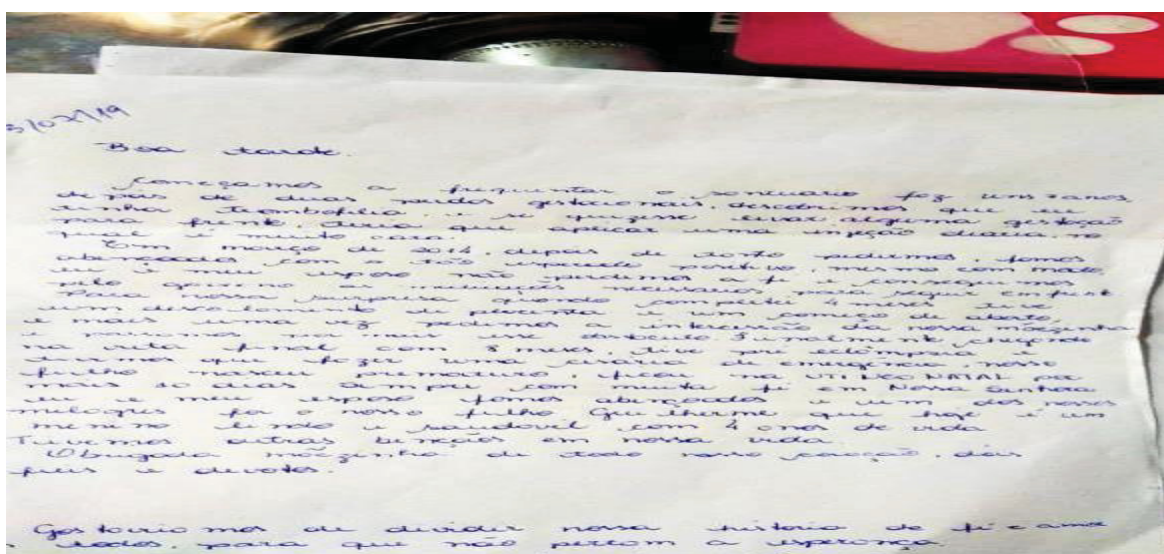 3/02/19
Boa tarde.
Começamos a frequentar o santuario faz uns anos
depois de duas perdas gestacionais descobrimos que eu
tinha Trombofilia, e se quizesse levar alguma gestação
para frente, teria que aplicar uma injeção diaria, no
qual é muito cara.
Em março de 2014, depois de tanto pedirmos, fomos
abençoados com o tão esperado positivo, mesmo com medo,
eu e meu esposo não perdemos a fé e conseguimos
pelo governo as injeções necessarias para seguir em frente
Para nossa surpresa quando completei 4 meses tive
um descolamento de placenta e um começo de aborto,
e mais uma vez pedimos a intercessão da nossa mãezinha
e passamos por mais esse obstaculo. Finalmente chegando
na reta final com 8 meses, tive pré eclâmpsia e
tivemos que fazer uma cesarea de emergencia, nosso
filho nasceu prematuro, ficou na UTI NEONATAL por
mais 10 dias sempre com muita fé em Nossa Senhora
eu e meu esposo fomos abençoados e um dos nossos
milagres foi o nosso filho Guilherme que hoje é um
menino lindo e saudavel com 4 anos de vida
Tivemos outras bençãos em nossa vida.
Obrigada mãezinha de todo nosso coração, dois
fieis e devotos.
Gostariamos de dividir nossa historia de fé e amor
todos, para que não percam a esperança.